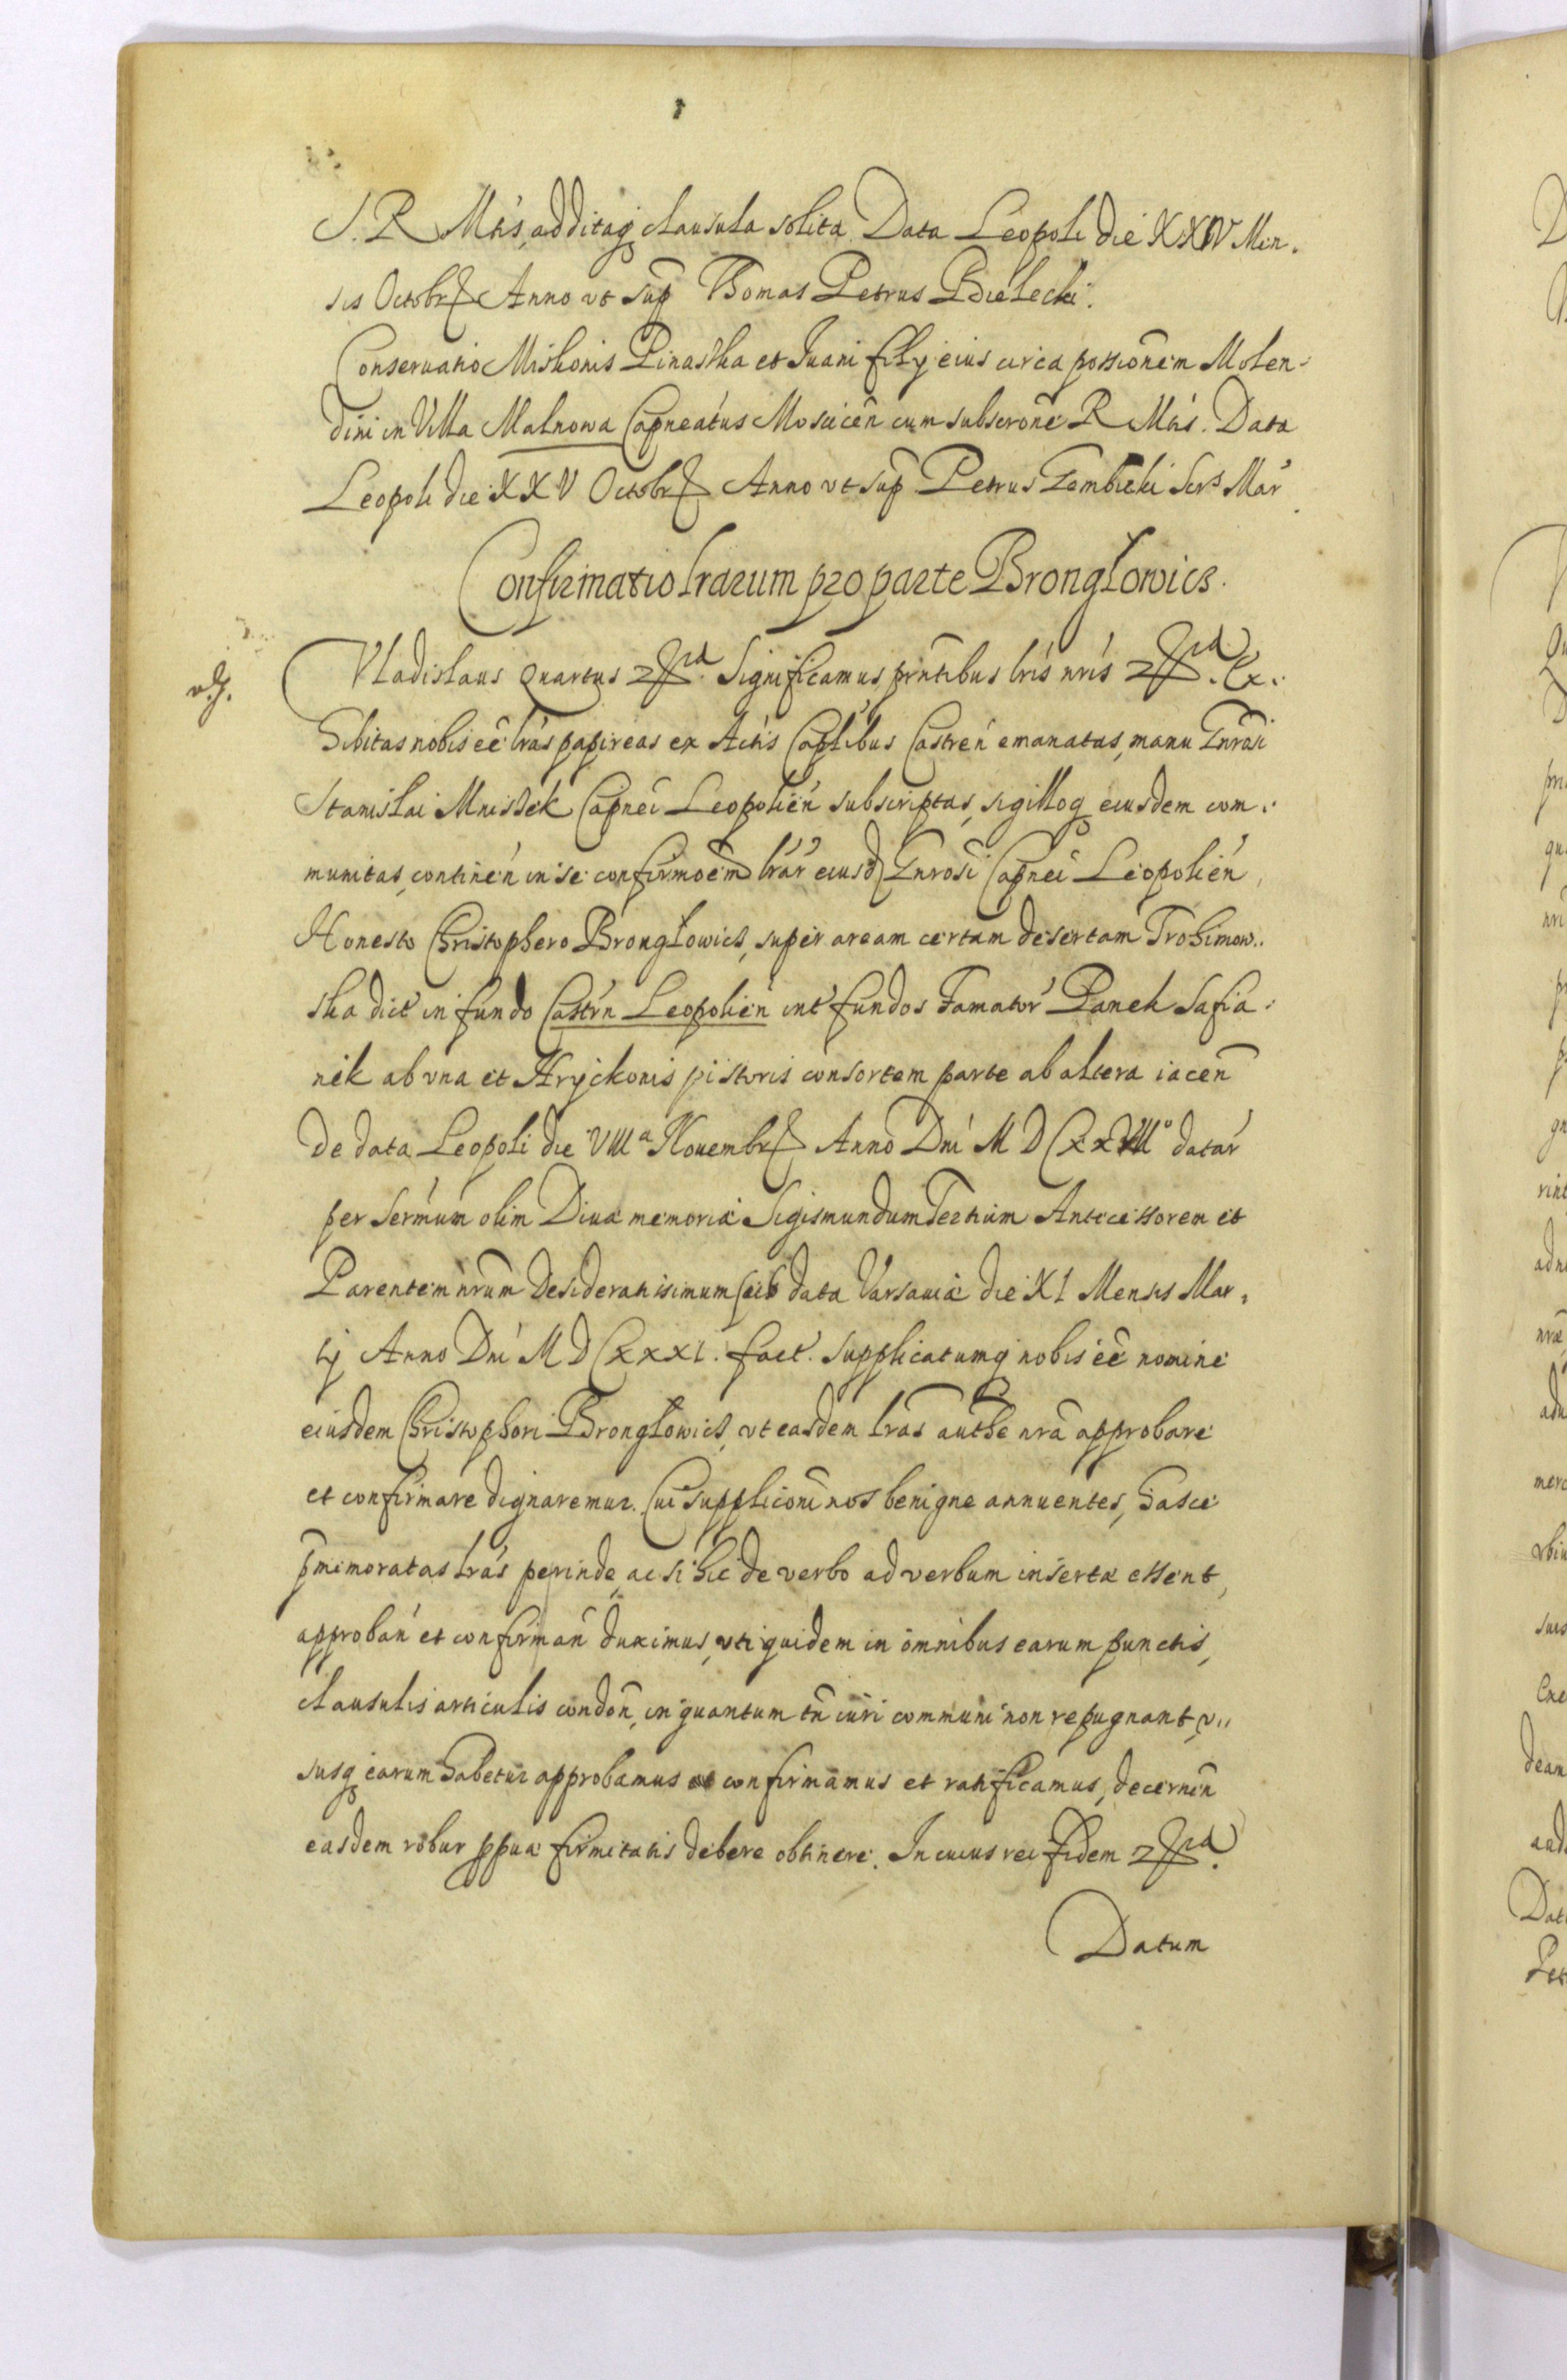 S. R Mtis, additaq clausula solita. Data Leopoli die XXIV Men-
sis Octobr Anno vt sup Thomas Petrus Bielecki.
Conseruatio Miskonis Pinaska et Iuani filij eius circa possionem Molen-
dini in Villa Malnowa Capneatus Moscicen cum subscrone R Mtis. Data
Leopoli die XXV Octobr Anno vt sup Petrus Gembicki Secrs Mar
Confirmatio lrarum pro parte Bronglowicz.
Vladislaus Quartus Significamus prntibus lris nris Ex-
hibitas nobis eē lras papireas ex Actis Captlibus Castren emanatas, manu Gnrosi
Stanislai Mniszek Capnei Leopolien subscriptas, sigilloq eiusdem com-
munitas, continen in se confirmoem lrar eiusd Gnrosi Capnei Leopolien,
Honesto Christophero Bronglowicz, super aream certam desertam Trohimow-
ska dict in fundo Castrn Leopolien int fundos Famator Panek Safia-
nik ab vna et Hryckonis pistoris consortem parte ab altera iacen
de data Leopoli die VIIIa Nouembr Anno Dni M D CXXVIIIo datar
per Sermum olim Diuæ memoriæ Sigismundum Tertium Antecessorem et
Parentem nrum Desideratissimum sub data Varsauiæ die XI Mensis Mar-
tij Anno Dni M D CXXXI. fact. Supplicatumq nobis eē nomine
eiusdem Christophori Bronglowicz, vt easdem lras authe nra approbare
et confirmare dignaremur. Cui suppliconi nos benigne annuentes, hasce
pmemoratas lras perinde, ac si hic de verbo ad verbum insertæ essent,
approban et confirman duximus, vti quidem in omnibus earum punctis,
clausulis articulis condon, in quantum tn iuri communi non repugnant, v-
susq earum habetur approbamus et confirmamus et ratificamus, decernen
easdem robur ppuæ firmitatis debere obtinere. In cuius rei fidem
Datum